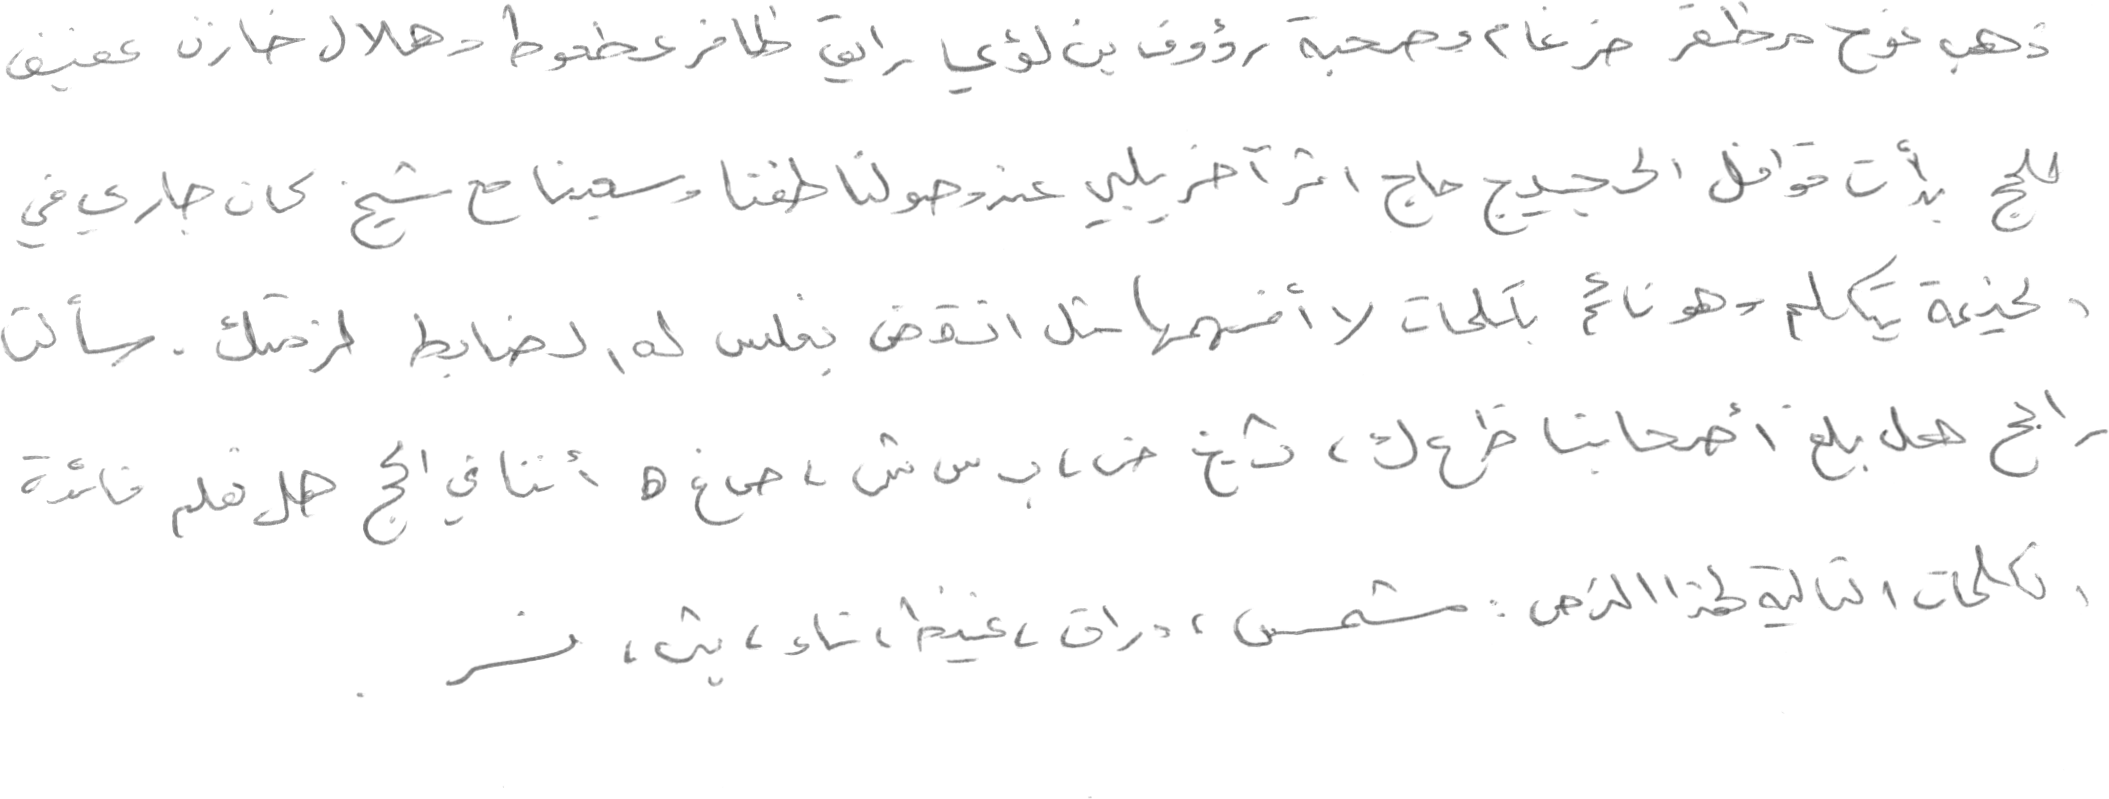 ذهب نوح مظفر ضرغام بصحبة رؤوف بن لؤي رايق ظافر عطعوط وهلال خازن عفيف
للحج بدأت قوافل الحجيج حاج اثر آخر يلبي عند وصولنا طفنا وسعينا مع شيخ كان جاري في
الخيمة يتكلم وهو نائم بكلمات لا أفهمها مثل انقض يغلس له الضابط لزمتك . سألت
رابح هل بلغ أصحابنا ظ ع ك ، ث غ ض ، ب س ش ، ص غ ه أثنا في الحج هل تعلم فائدة
الكلمات التالية لهذا النص : شمس ، دراق ، غيظ ، شاء ، بث ، نسر .